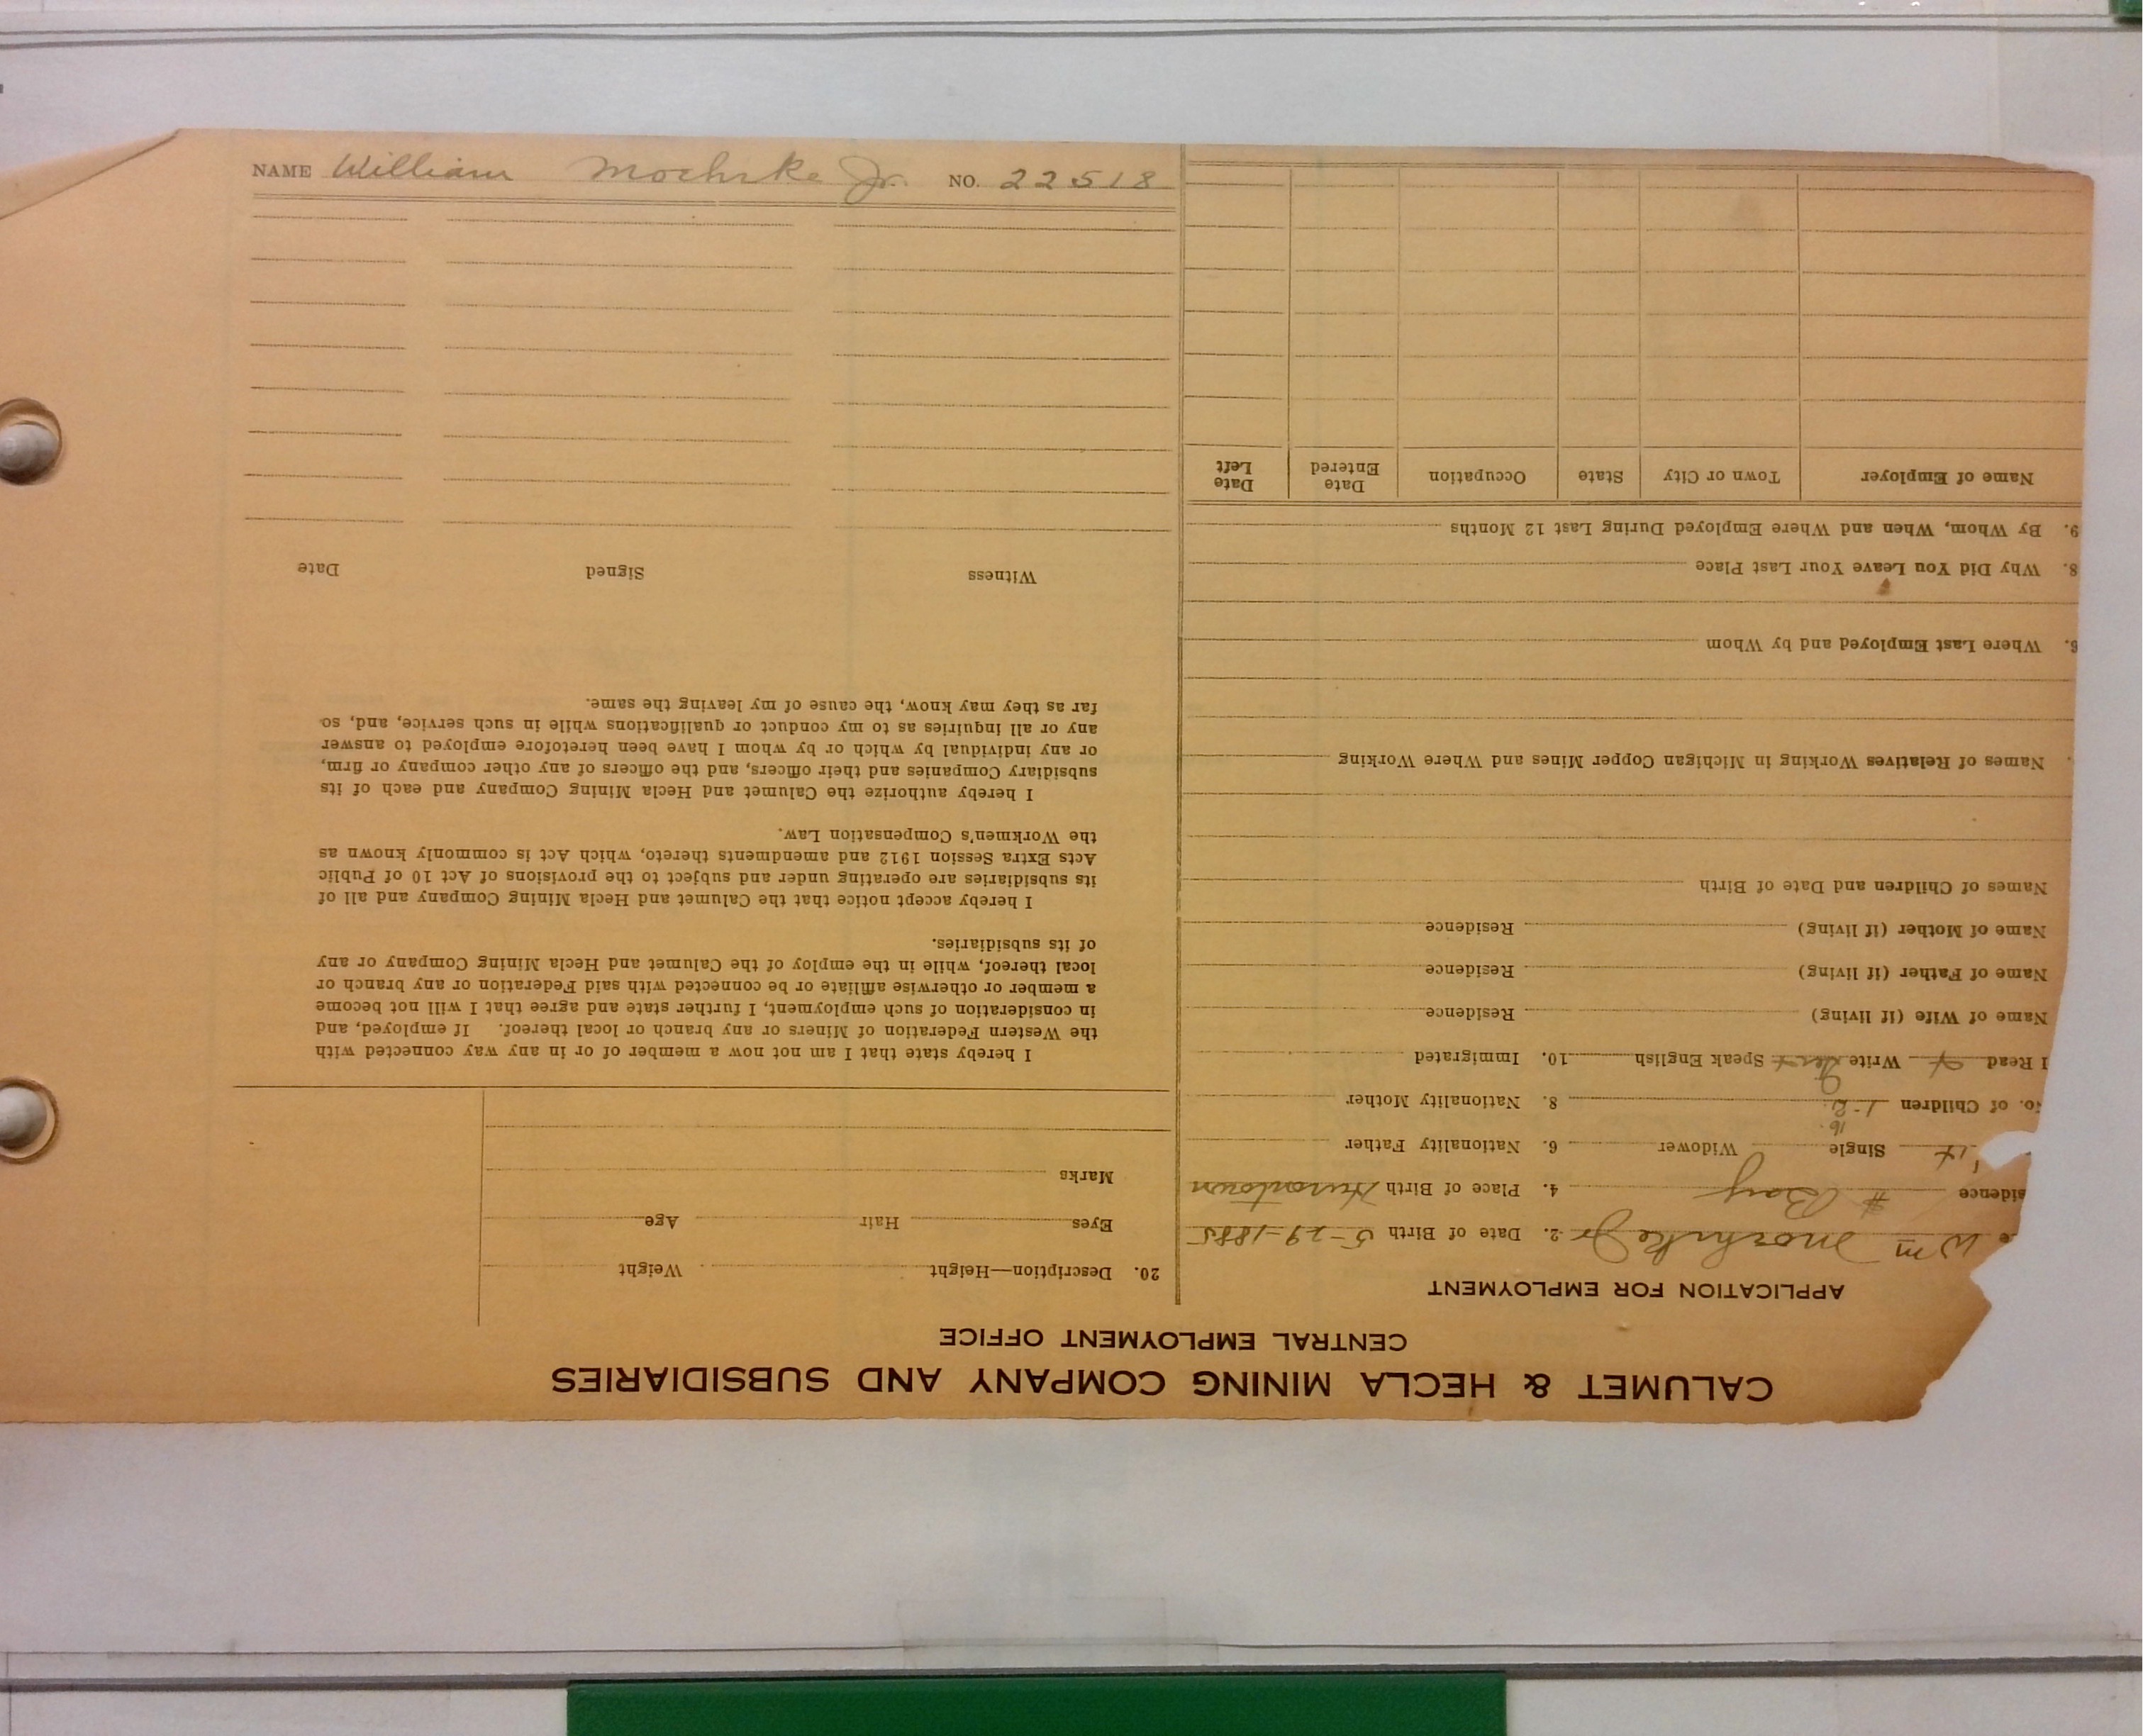 NAME William Moehrke Jr. NO. 22518
CALUMET & HECLA MINING COMPANY AND SUBSIDIARIES
CENTRAL EMPLOYMENT OFFICE
APPLICATION FOR EMPLOYMENT
e Wm Moehrke Jr 2. Date of Birth 5-29-1885
sidence # Bay 4. Place of Birth Hurontown
Single Widower 6. Nationality Father
o. of Children 8. Nationality Mother
I Read Write Speak English 10. Immigrated
Name of Wife (if living) Residence
Name of Father (if living) Residence
Name of Mother (if living) Residence
Names of Children and Date of Birth
Names of Relatives Working in Michigan Copper Mines and Where Working
6. Where Last Employed and by Whom
8. Why Did You Leave Your Last Place
9. By Whom, When and Where Employed During Last 12 Months
Name of Employer Town or City State Occupation Date Entered Date Left
20. Description—Height Weight
Eyes Hair Age
Marks
I hereby state that I am not now a member of or in any way connected with
the Western Federation of Miners or any branch or local thereof. If employed, and
in consideration of such employment, I further state and agree that I will not become
a member or otherwise affiliate or be connected with said Federation or any branch or
local thereof, while in the employ of the Calumet and Hecla Mining Company or any
of its subsidiaries.
I hereby accept notice that the Calumet and Hecla Mining Company and all of
its subsidiaries are operating under and subject to the provisions of Act 10 of Public
Acts Extra Session 1912 and amendments thereto, which Act is commonly known as
the Workmen's Compensation Law.
I hereby authorize the Calumet and Hecla Mining Company and each of its
subsidiary Companies and their officers, and the officers of any other company or firm,
or any individual by which or by whom I have been heretofore employed to answer
any or all inquiries as to my conduct or qualifications while in such service, and, so
far as they may know, the cause of my leaving the same.
Witness Signed Date